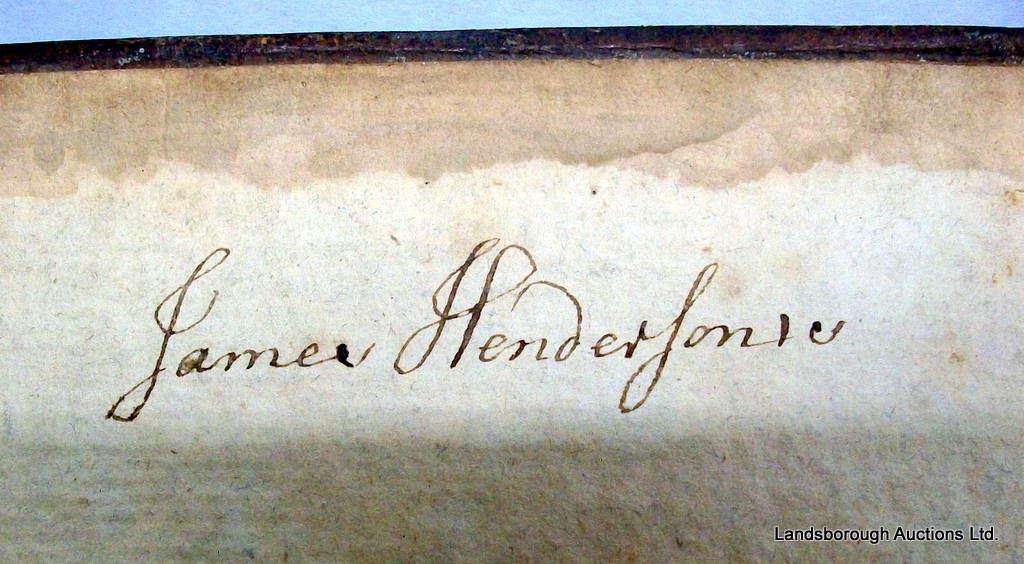 James Hendersone
Landsborough Auctions Ltd.